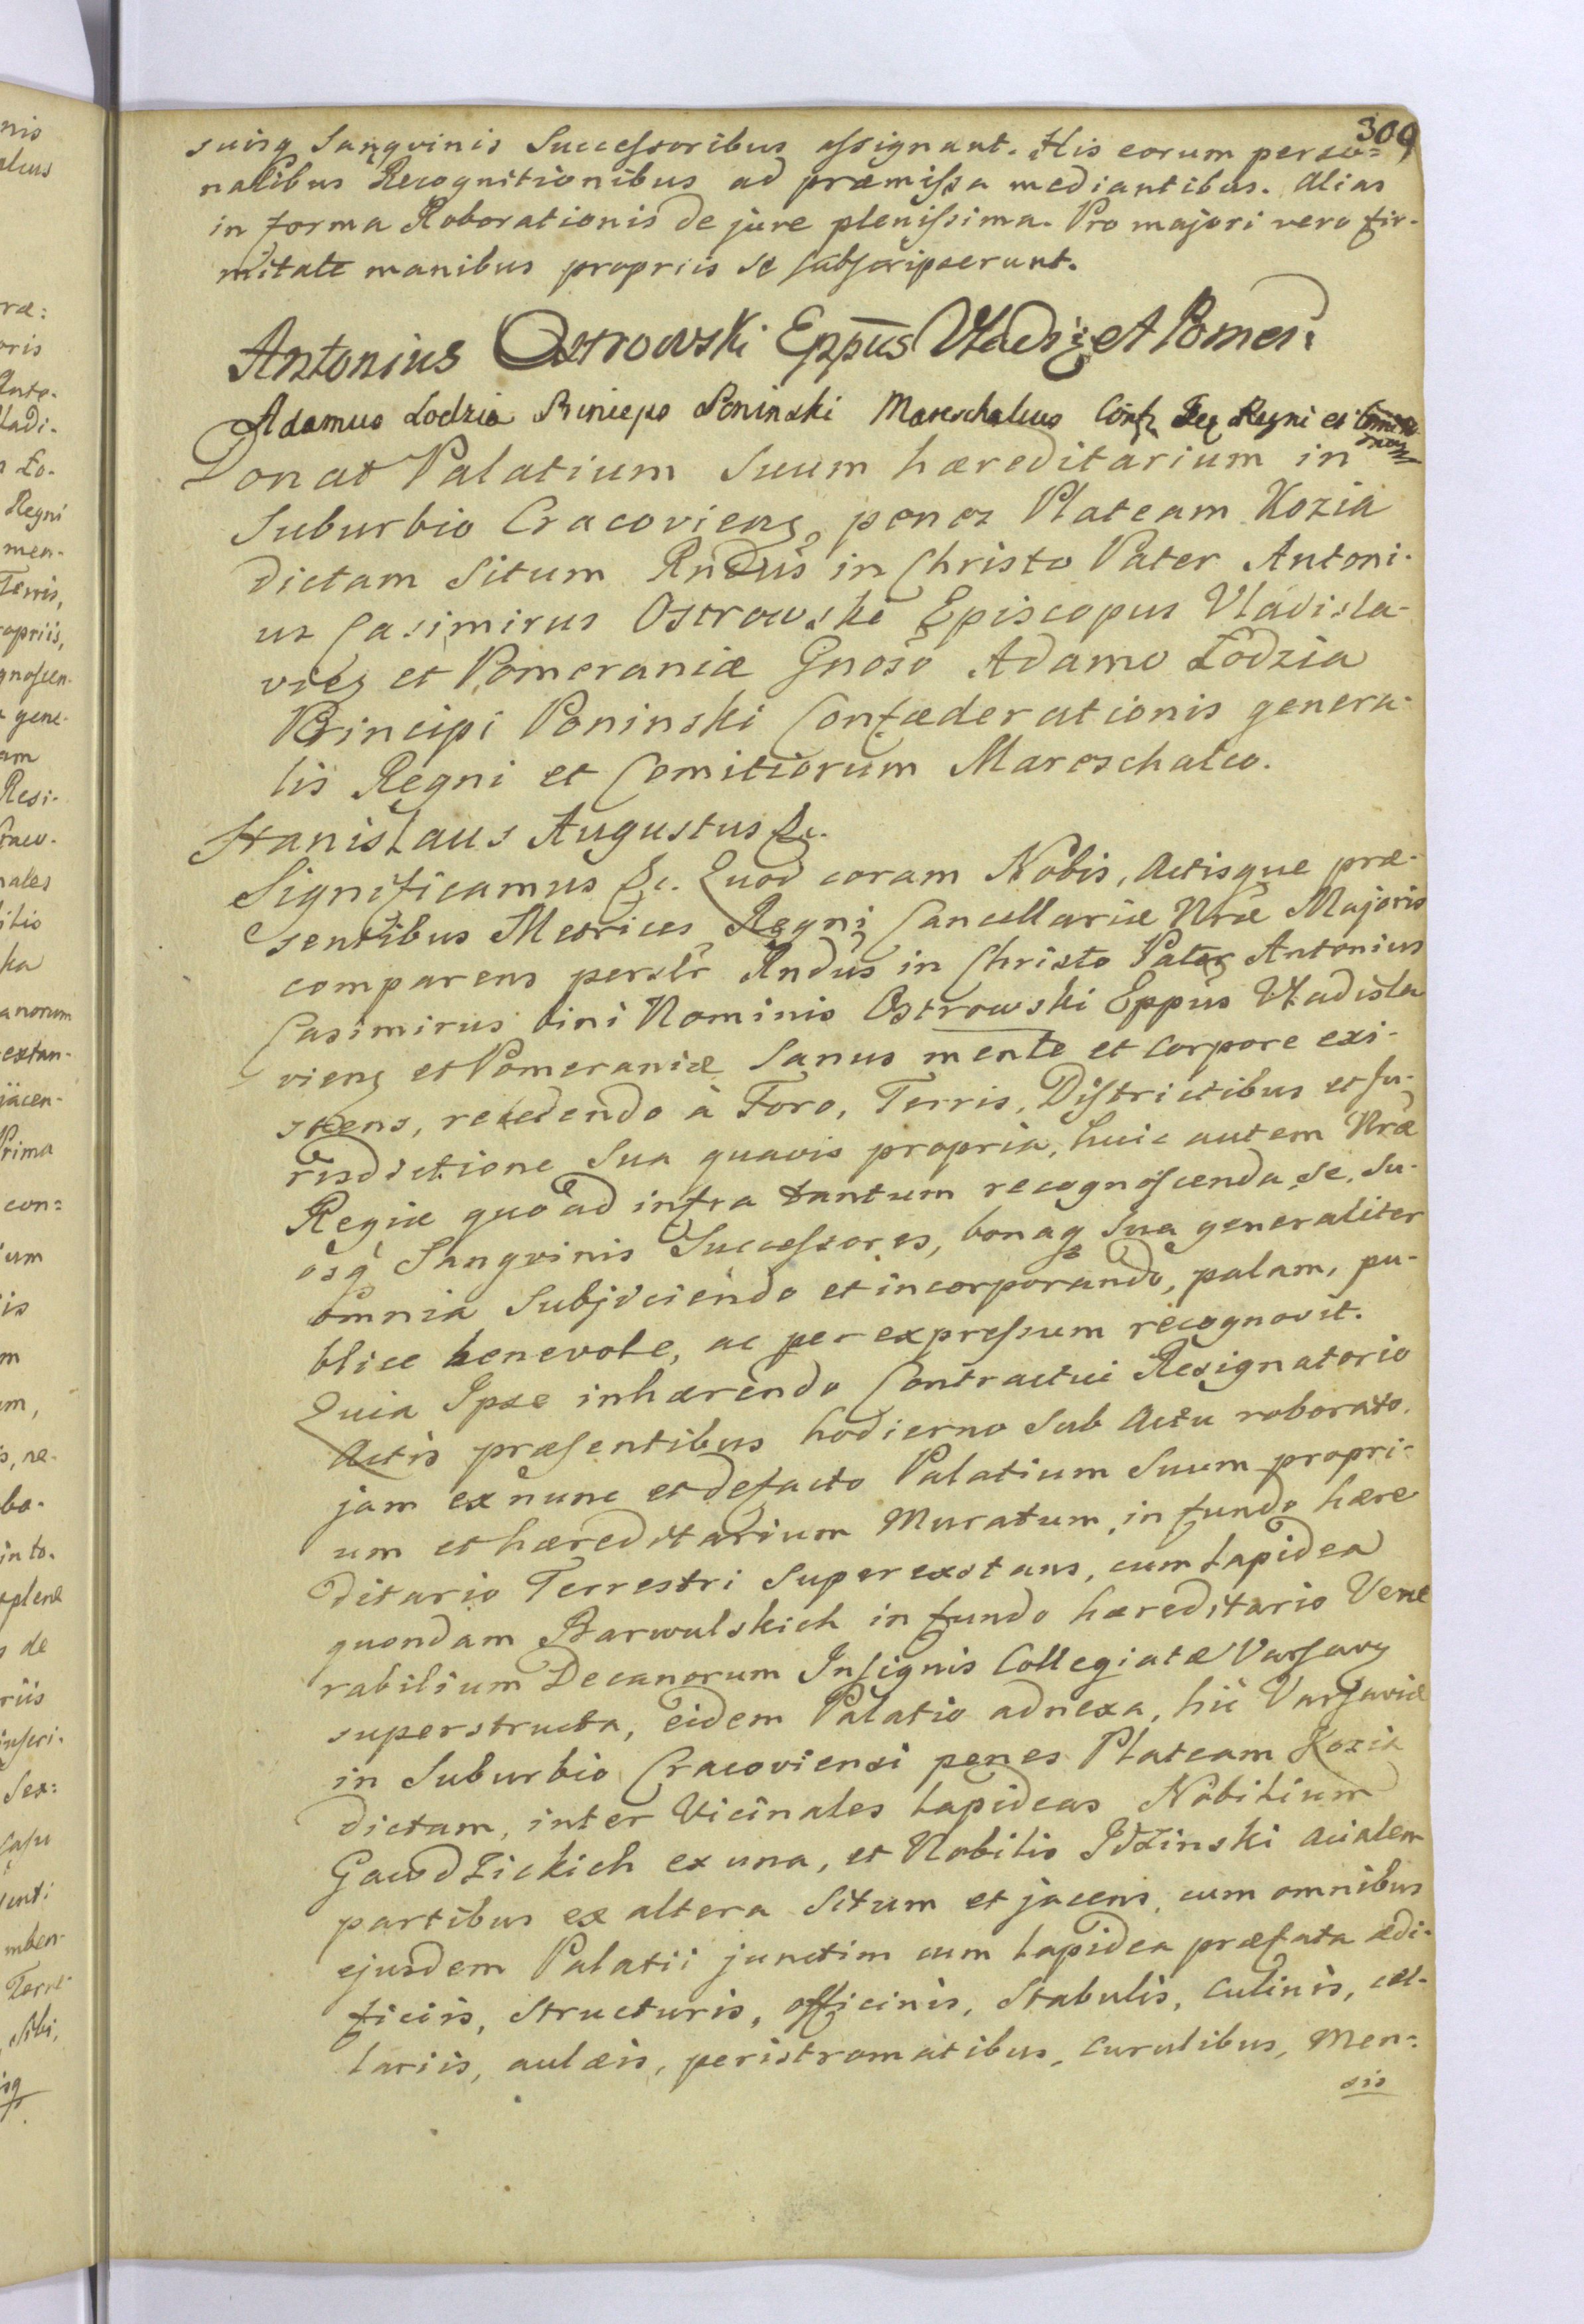 309
suisq Sangvinis Successoribus assignant. His eorum perso=
nalibus Recognitionibus ad præmissa mediantibus. Alias
in forma Roborationis de jure plenissima. Pro majori vero fir-
mitate manibus propriis se subscripserunt.
Antonius Ostrowski Eppus Vlads: et Pomer:
Adamus Lodzia Princeps Poninski Mareschalcus Conf. Regni et
Donat Palatium Suum hæreditarium in
Suburbio Cracoviens, penes Plateam Kozia
dictam Situm Rndus in Christo Pater Antoni-
us Casimirus Ostrowski Episcopus Vladisla-
vies et Pomeraniæ Gnoso Adamo Łodzia
Principi Poninski Confæderationis genera-
lis Regni et Comitiorum Mareschalco.
Stanislaus Augustus &c.
Significamus &c. Quod coram Nobis, Actisque præ-
sentibus Metrices Regni Cancellariæ Nræ Majoris
comparens perslr Rndus in Christo Pater Antonius
Casimirus bini Nominis Ostrowski Eppus Vladisla
viens et Pomeraniæ Sanus mente et corpore exi-
stens, recedendo à Foro, Terris, Districtibus et Ju-
risdictione Sua quavis propria, huic autem Nræ
Regiæ quo ad infra tantum recognoscenda se, Su-
osq Sangvinis Successores, bonaq Sua generaliter
omnia Subjiciendo et incorporando, palam, pu-
blice benevole, ac per expressum recognovit.
Quia Ipse inhærendo Contractui Resignatorio
Actis præsentibus hodierno Sub Actu roborato,
jam ex nunc et defacto Palatium Suum propri-
um et hæreditarium Muratum, in fundo hære
ditario Terrestri Superexstans, cum Lapidea
quondam Barwulskich in fundo hæreditario Vene
rabilium Decanorum Insignis Collegiatæ Varsavi
superstructa, eidem Palatio adnexa, hic Varsaviæ
in Suburbio Cracoviensi penes Plateam Kozia
dictam, inter Vicinales Lapideas Nobilium
Gawdzickich ex una, et Nobilis Idzinski acialem
partibus ex altera Situm et jacens, cum omnibus
ejusdem Palatii junctim cum Lapidea præfata ædi-
ficiis, Structuris, officinis, Stabulis, Culinis, cel-
lariis, aulæis, peristromatibus, curulibus, Men=
sis